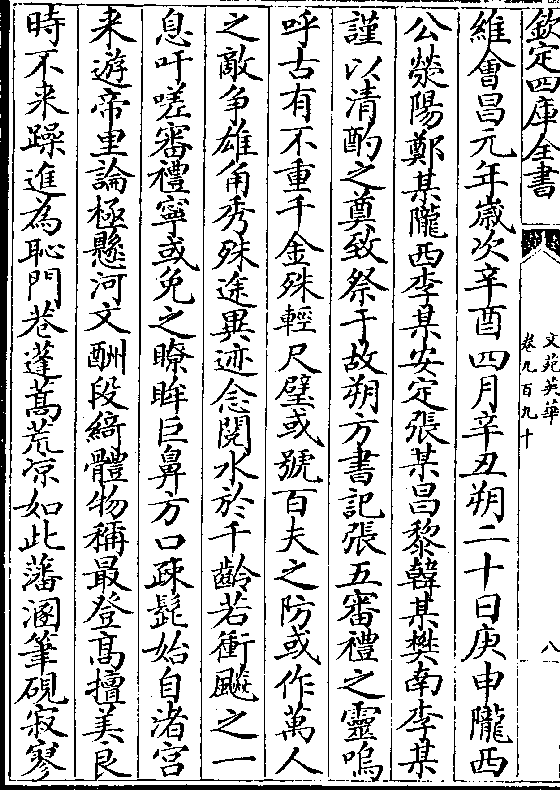 欽定四庫全書
文苑英華
卷九百九十
八
維會昌元年歲次辛酉四月辛丑朔二十日庚申隴西
公滎陽鄭某隴西李某安定張某昌黎韓某樊南李某
謹以清酌之奠致祭于故朔方書記張五審禮之靈嗚
呼古有不重千金殊輕尺璧或號百夫之防或作萬人
之敵爭雄角秀殊途異迹念閱水於千齡若衝飈之一
息吁嗟審禮寧或免之瞭眸巨鼻方口疎髭始自渚宮
来遊帝里論極懸河文酬段綺體物稱最登髙擅美良
時不来躁進為恥門巷蓬蒿荒凉如此藩溷筆硯寂寥